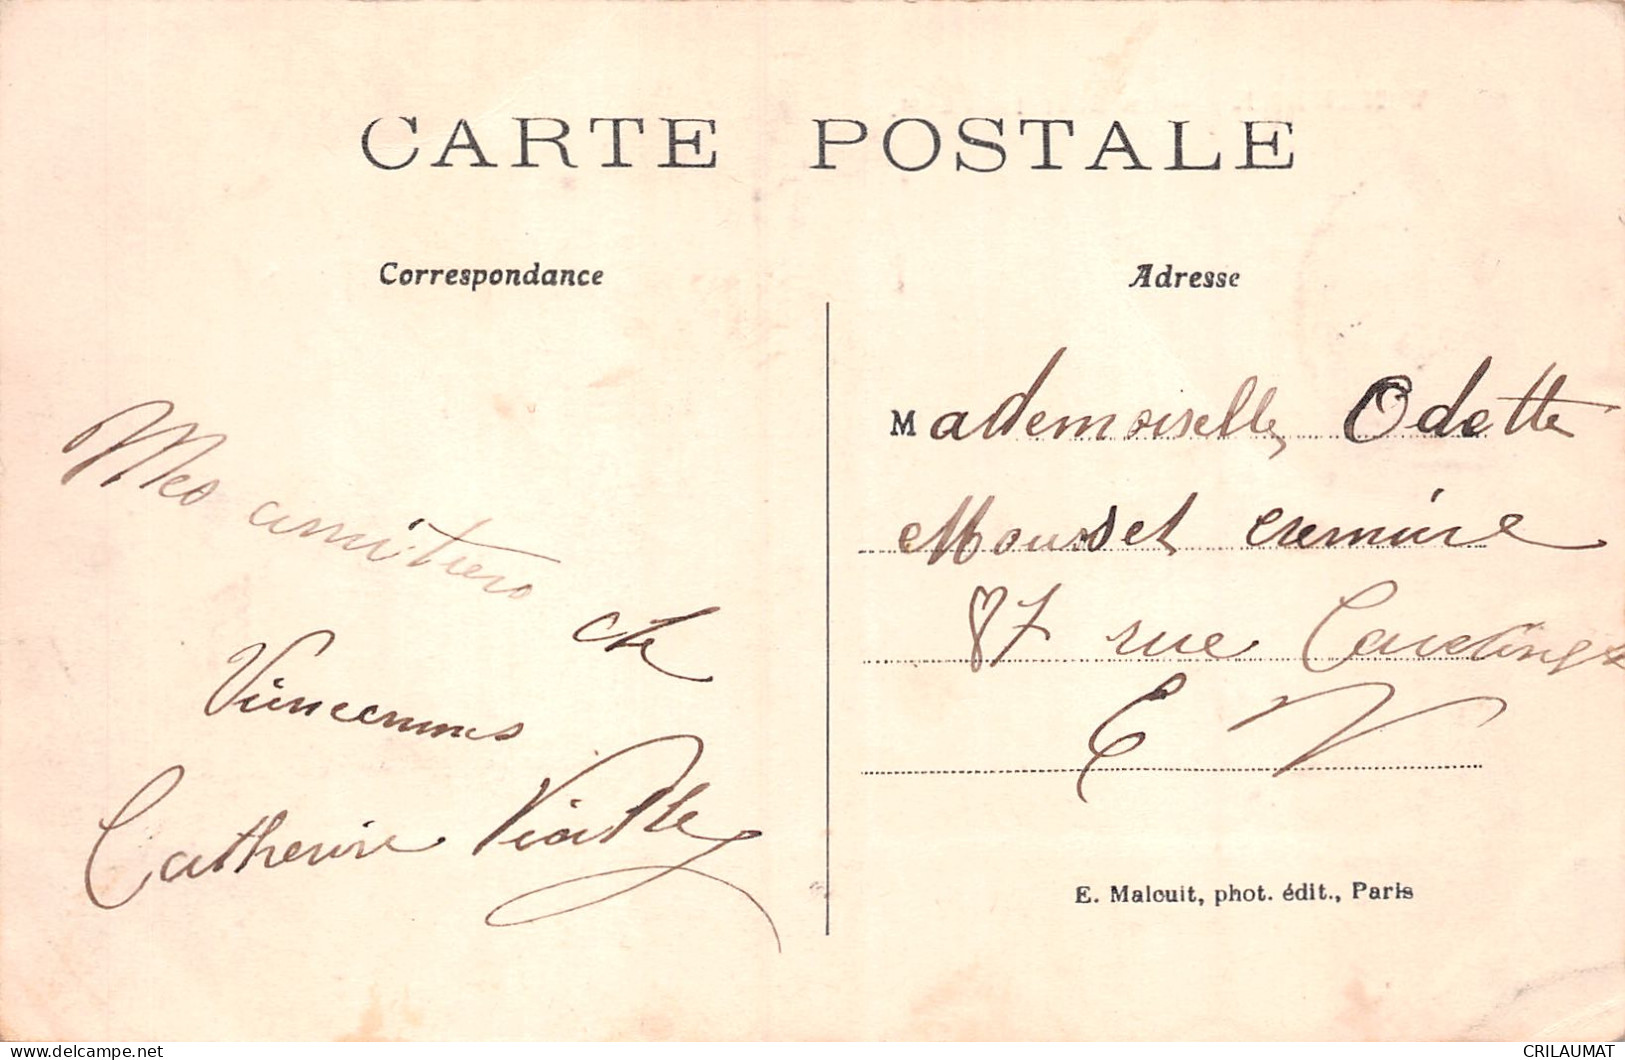 CARTE POSTALE
Correspondance
Mes amitiers
de
Vincennes
Catherine Vialle
Adresse
Mademoiselle Odette
Mousset cremiire
87 rue
E V
E. Malcuit, phot. édit., Paris
CRILAUMAT